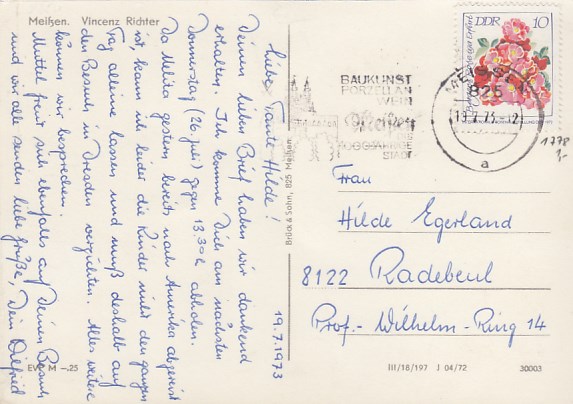 Meißen. Vincenz Richter
19.7.1973
Liebe Tante Hilde!
Deinen lieben Brief haben wir dankend
erhalten. Ich komme Dich am nächsten
Donnerstag (26. Juli) gegen 13.30 h abholen.
Da Melita gestern bereits nach Amerika abgereist
ist, kann ich leider die Kinder nicht den ganzen
Tag alleine lassen und muß deshalb auf
den Besuch in Dresden verzichten. Alles weitere
können wir besprechen.
Muttel freut sich ebenfalls auf Deinen Besuch
und wir alle senden liebe Grüße, Dein Dietfried
EVP M –.25
Brück & Sohn, 825 Meißen
BAUKUNST
PORZELLAN
WEIN
Meißen
STADT
MEISSEN
825
19.7.73.-12
a
DDR 10
1778
1,-
Frau
Hilde Egerland
8122 Radebeul
Prof.-Wilhelm-Ring 14
III/18/197 J 04/72
30003